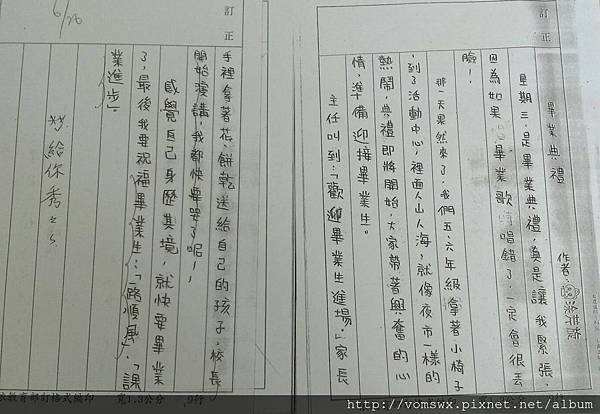 訂正
畢業典禮
作者:
星期三,是畢業典禮,真是讓我緊張,
因為如果畢業歌唱錯了,一定會很丟
臉!
那一天果然來了,我們五、六年級拿著小椅子
,到了活動中心,裡面人山人海,就像夜市一樣的
熱鬧,典禮即將開始,大家帶著興奮的心
情,準備迎接畢業生。
主任叫到:「歡迎畢業生進場。」家長
訂正
6/20
手裡拿著花、餅乾送給自己的孩子,校長
開始演講,我都快要哭了呢!
感覺自己身歷其境,就快要畢業
了,最後我要祝福畢業生:「一路順風」、「課
業進步」。
給你秀
教育部訂格式編印
寬1.3公分
9行
http://vomswx.pixnet.net/album